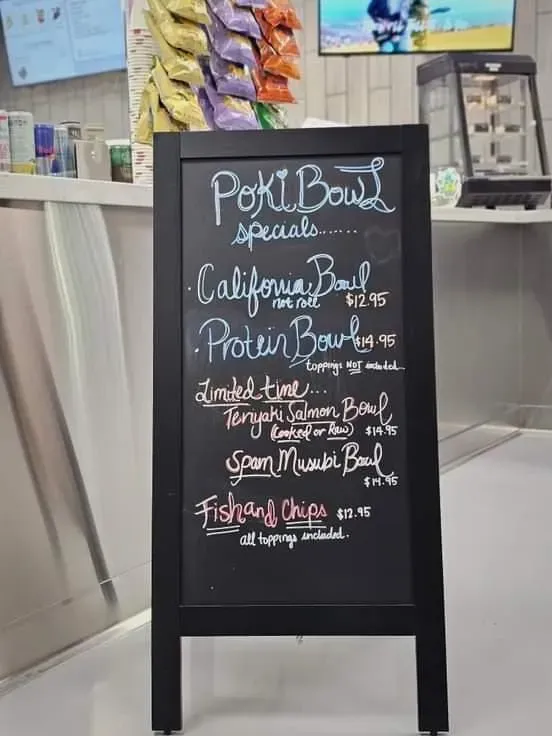 Poki Bowl
specials......
California Bowl
not roll $12.95
Protein Bowl $14.95
toppings NOT included...
Limited time...
Teriyaki Salmon Bowl
(Cooked or Raw) $14.95
Spam Musubi Bowl
$14.95
Fish and Chips $12.95
all toppings included.